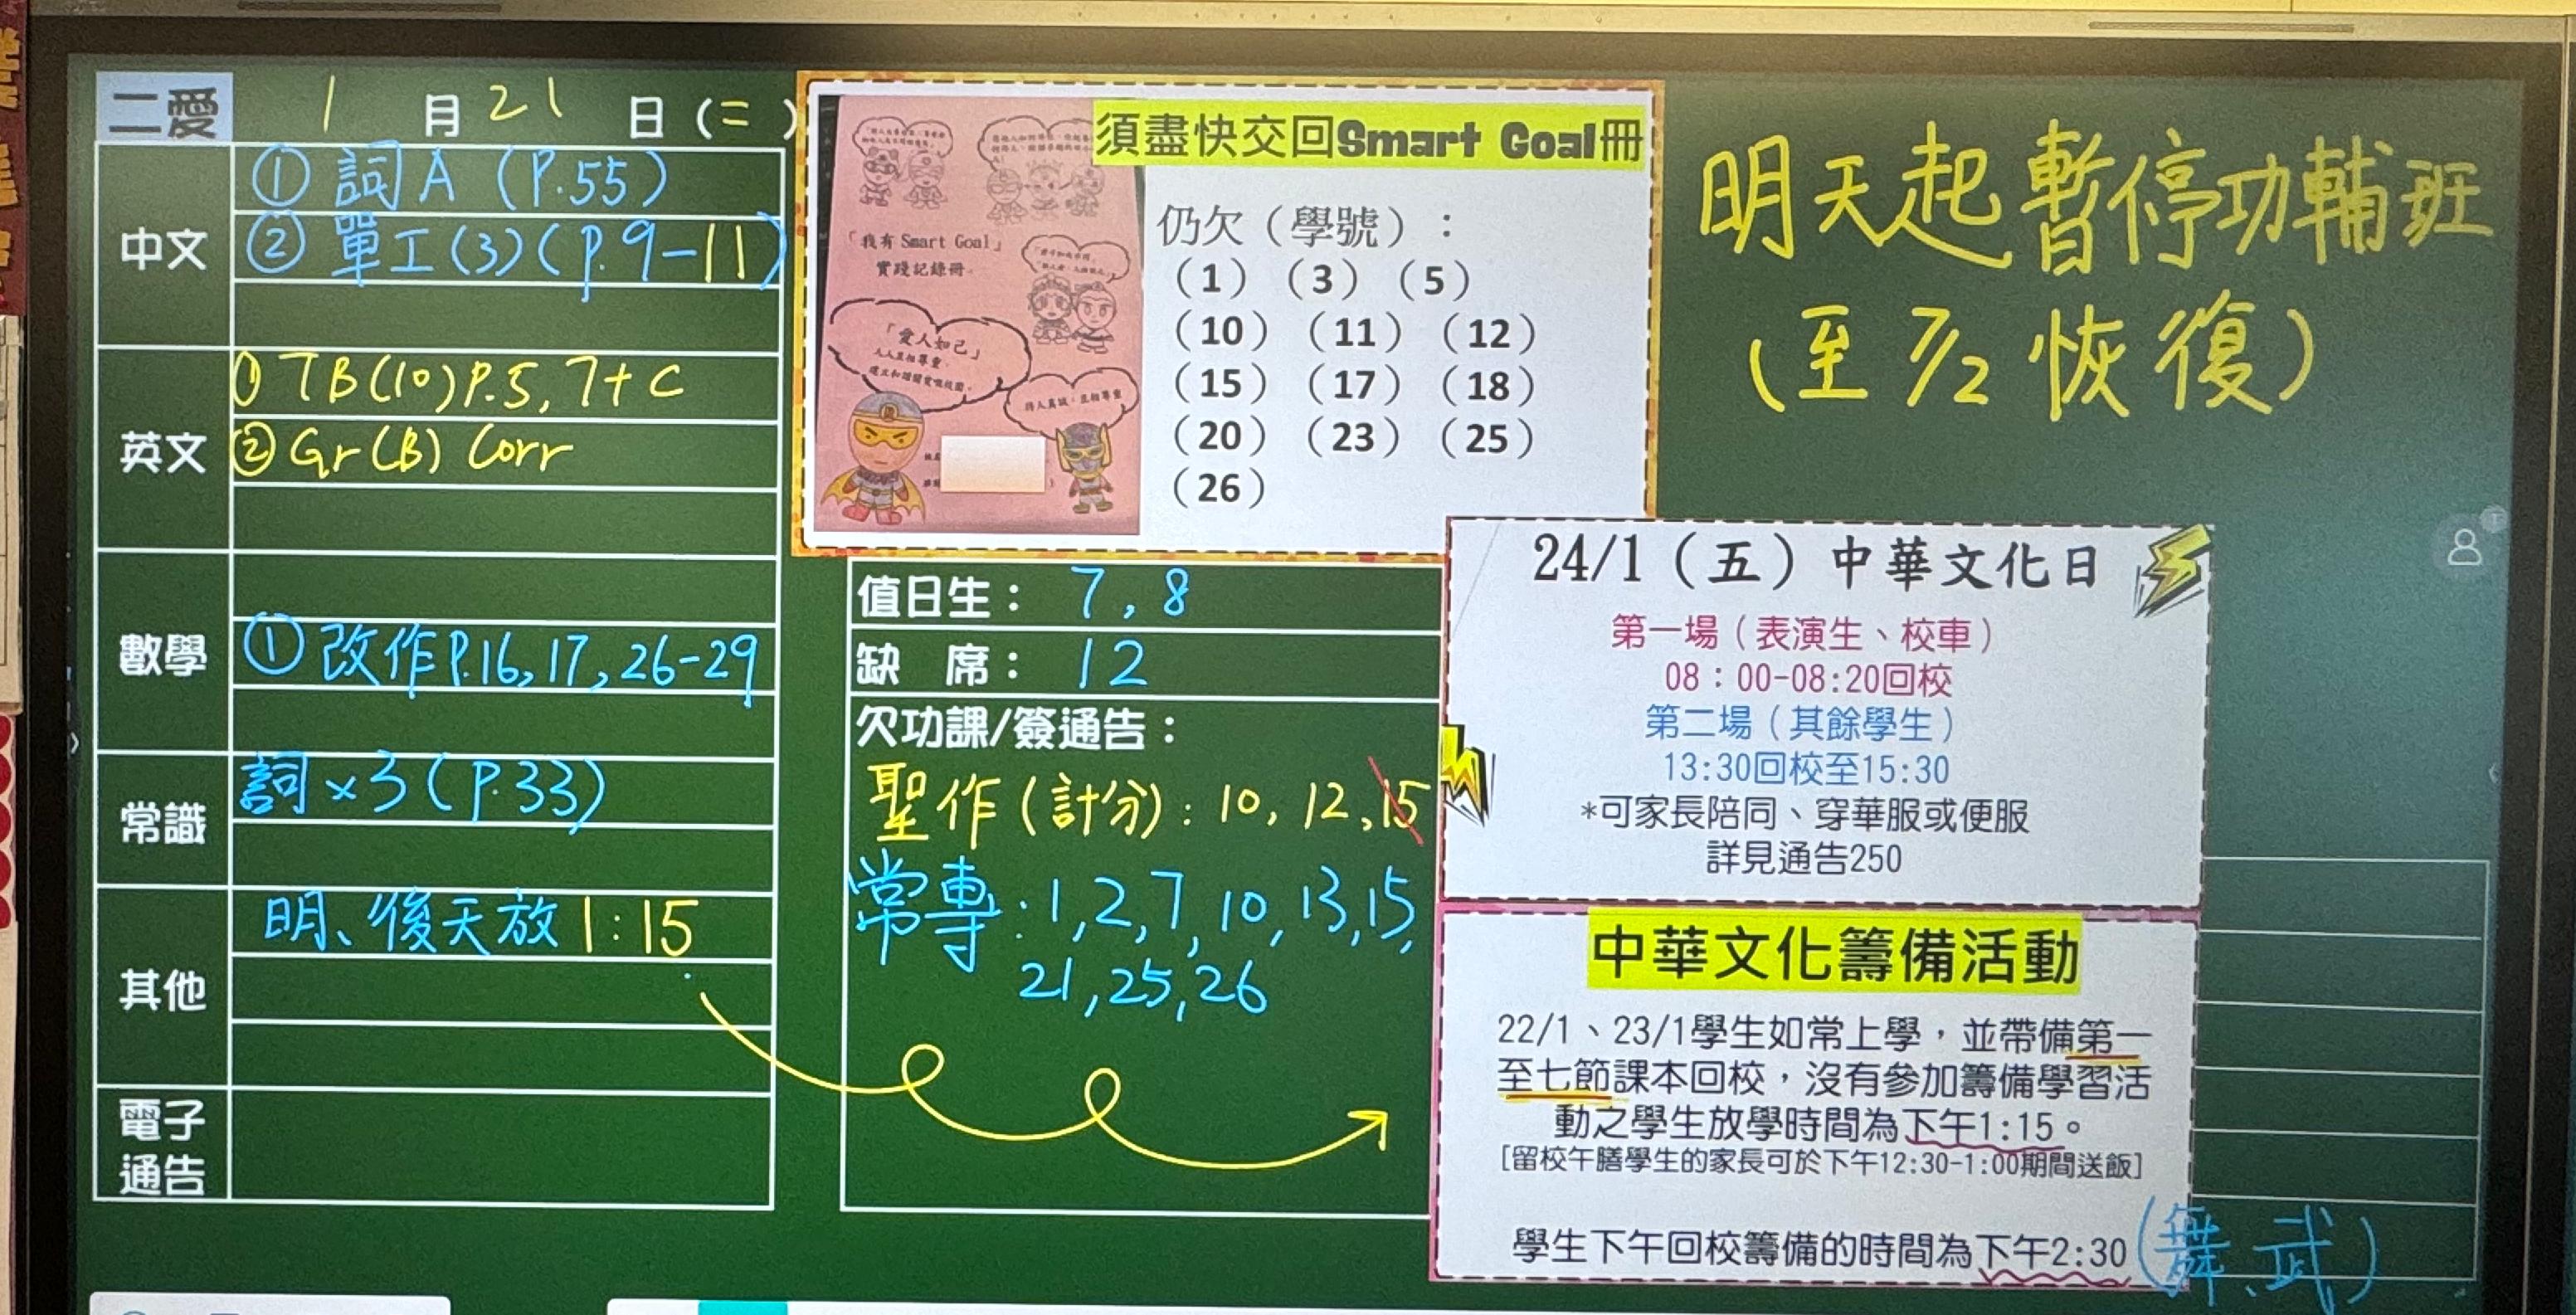 二愛 1月21日(二)
中文
① 詞A (P.55)
② 單工(3)(P.9-11)
英文
① TB(10)P.5, 7+C
② Gr(B) Corr
數學
① 改作P.16, 17, 26-29
常識
詞×3(P.33)
其他
明、後天放1:15
電子
通告
須盡快交回Smart Goal冊
「我有 Smart Goal」
實踐記錄冊
「愛人如己」
人人互相尊重,
待人真誠,互相尊重
仍欠(學號):
(1)(3)(5)
(10)(11)(12)
(15)(17)(18)
(20)(23)(25)
(26)
明天起暫停功輔班
(至 7/2 恢復)
值日生: 7, 8
缺 席: 12
欠功課/簽通告:
聖作(計分): 10, 12, 15
常專: 1, 2, 7, 10, 13, 15,
21, 25, 26
24/1(五)中華文化日
第一場(表演生、校車)
08:00-08:20回校
第二場(其餘學生)
13:30回校至15:30
*可家長陪同、穿華服或便服
詳見通告250
中華文化籌備活動
22/1、23/1學生如常上學,並帶備第一
至七節課本回校,沒有參加籌備學習活
動之學生放學時間為下午1:15。
[留校午膳學生的家長可於下午12:30-1:00期間送飯]
學生下午回校籌備的時間為下午2:30(舞、武)